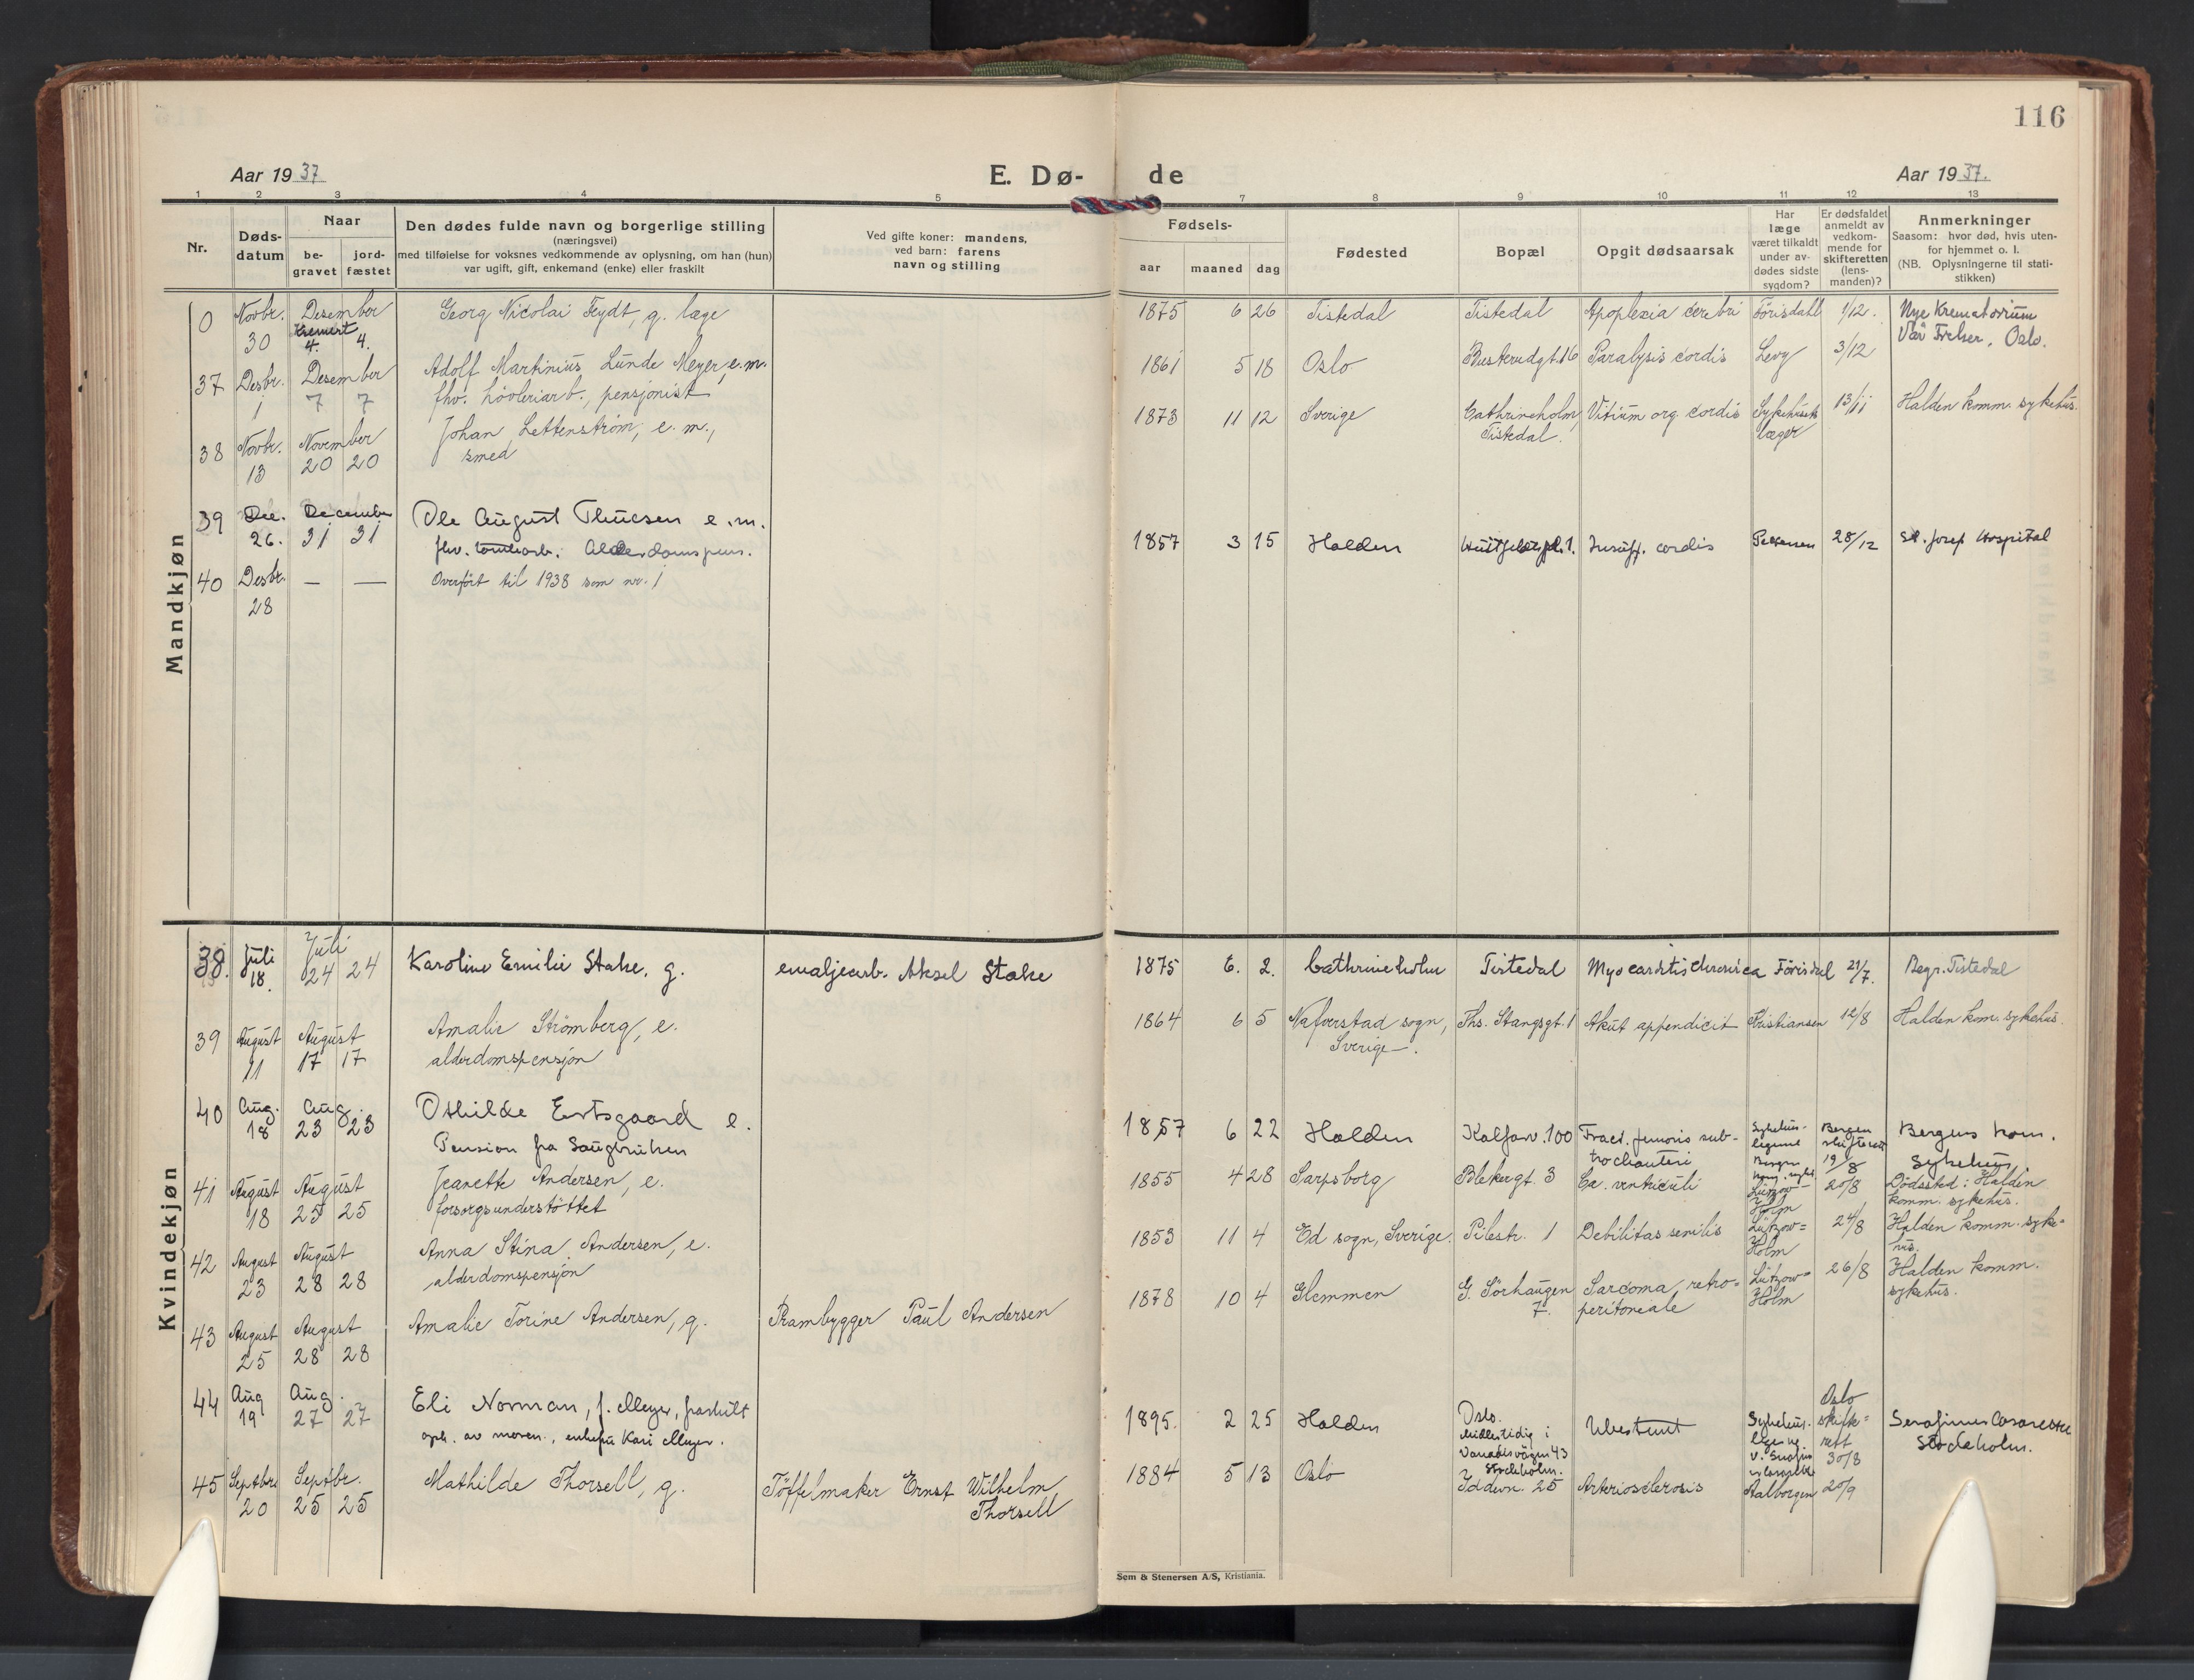 116
Aar 1937
E. Dø-
de
Aar 1937.
1 2 3 4 5 7 8 9 10 11 12 13
Nr.
Døds-
datum
Naar
be-
gravet
jord-
fæstet
Den dødes fulde navn og borgerlige stilling
(næringsvei)
med tilføielse for voksnes vedkommende av oplysning, om han (hun)
var ugift, gift, enkemand (enke) eller fraskilt
Ved gifte koner: mandens,
ved barn: farens
navn og stilling
Fødsels-
aar maaned dag
Fødested
Bopæl
Opgit dødsaarsak
Har
læge
været tilkaldt
under av-
dødes sidste
sygdom?
Er dødsfaldet
anmeldt av
vedkom-
mende for
skifteretten
(lens-
manden)?
Anmerkninger
Saasom: hvor død, hvis uten-
for hjemmet o. l.
(NB. Oplysningerne til stati-
stikken)
Mandkjøn
0 Novbr. Desember Georg Nicolai Feydt, g. læge 1875 6 26 Tistedal Tistedal Apoplexia cerebri Förisdahl 1/12. Nye Krematorium
30 Kremert 4. 4. Vår Frelser, Oslo.
37 Desbr. Desember Adolf Martinius Lunde Meyer, e.m. 1861 5 18 Oslo Busterudgt. 16 Paralysis cordis Levy 3/12
1 7 7 fhv. høvleriarb., pensjonist
38 Novbr. November Johan Lettenstrøm, e. m., 1873 11 12 Sverige Cathrineholm, Vitium org. cordis Sykehusets 13/11 Halden komm. sykehus.
13 20 20 smed Tistedal. læger
39 Dec. December Ole August Thuesen e. m. 1857 3 15 Halden Huitfeldtspl. 1. Insuff. cordis 28/12 St. Josep Hospital
26. 31 31 fhv. tomtearb. Alderdomspens.
40 Desbr. — — Overført til 1938 som nr. 1
28
Kvindekjøn
38. Juli Juli Karoline Emilie Stake, g. emaljearb. Aksel Stake 1875 6. 2. Cathrineholm Tistedal Myocarditis chronica Förisdal 21/7. Begr. Tistedal
18. 24 24
39 August August Amalie Strömberg, e. 1864 6 5 Nafverstad sogn, Ths. Stangsgt. 1 Akut appendicit Kristiansen 12/8 Halden kom. sykehus.
11 17 17 alderdomspensjon Sverige.
40 Aug. Aug. Othilde Ertsgaard e. 1857 6 22 Halden Kalfarv. 100 Fract. femoris sub- Sykehus- Bergen Bergens kom.
18 23 23 Pension fra Saugbruken trochanteri legene skifterett 19/8 Sykehus
41 August August Jeanette Andersen, e. 1855 4 28 Sarpsborg Blekergt. 3 Ca. ventriculi Lützow- 20/8 Dødssted: Halden
18 25 25 forsorgsunderstöttet Holm komm. sykehus.
42 August August Anna Stina Andersen, e. 1853 11 4 Ed sogn, Sverige. Pilestr. 1 Debilitas senilis Lützow= 24/8 Halden komm. syke=
23 28 28 alderdomspensjon Holm hus.
43 August August Amalie Torine Andersen, g. Prambygger Paul Andersen 1878 10 4 Glemmen G. Sörhaugen Sarcoma retro= Lützow= 26/8 Halden komm.
25 28 28 7. peritoneale Holm sykehus.
44 Aug Aug. Eli Norman, f. Meyer, fraskilt 1895. 2 25 Halden Oslo. Ubestemt Sykehus. Oslo skifte= Serafimer Lasarettet
19 27 27 opl. av moren, enkefru Kari Meyer. Midlertidig i legene rett Stockholm.
Vanadisvägen 43 v. Serafim 30/8
Stockholm.
45 Septbr. Septbr. Mathilde Thorsell, g. Töffelmaker Ernst Wilhelm 1884 5 13 Oslo Iddevn. 25 Arteriosclerosis Aalborgen 20/9
20 25 25 Thorsell
Sem & Stenersen A/S, Kristiania.